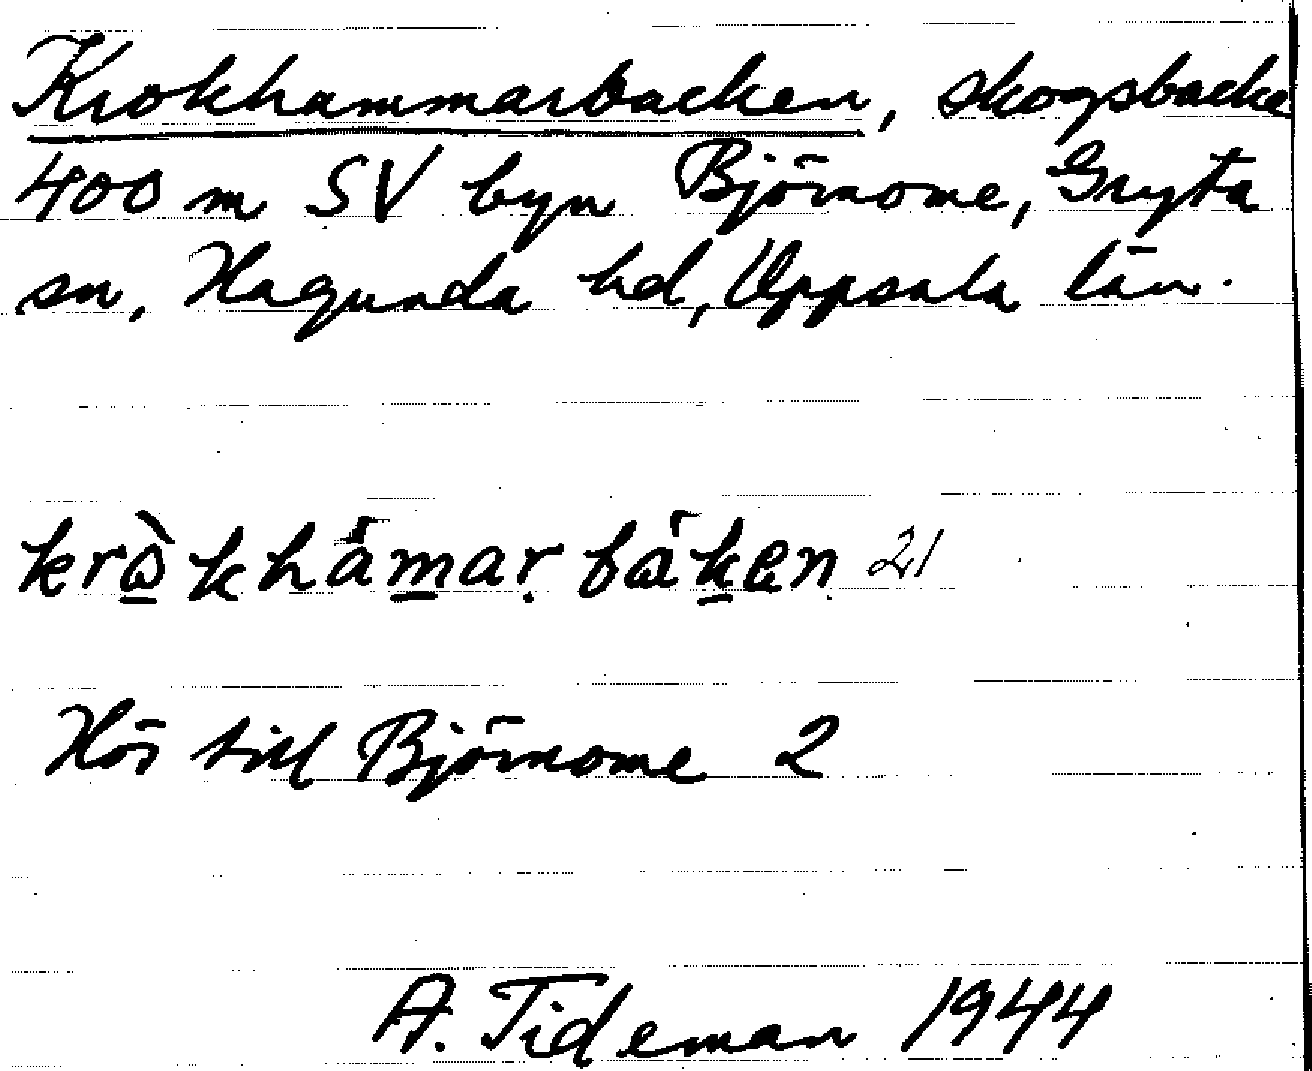 Krokhammarbacken, skogsbacke
400 m SV byn Björnome, Gryta
sn, Hagunda hd, Uppsala län.
krὼkhámar bάken 21
Hör till Björnome 2
A. Tideman 1944